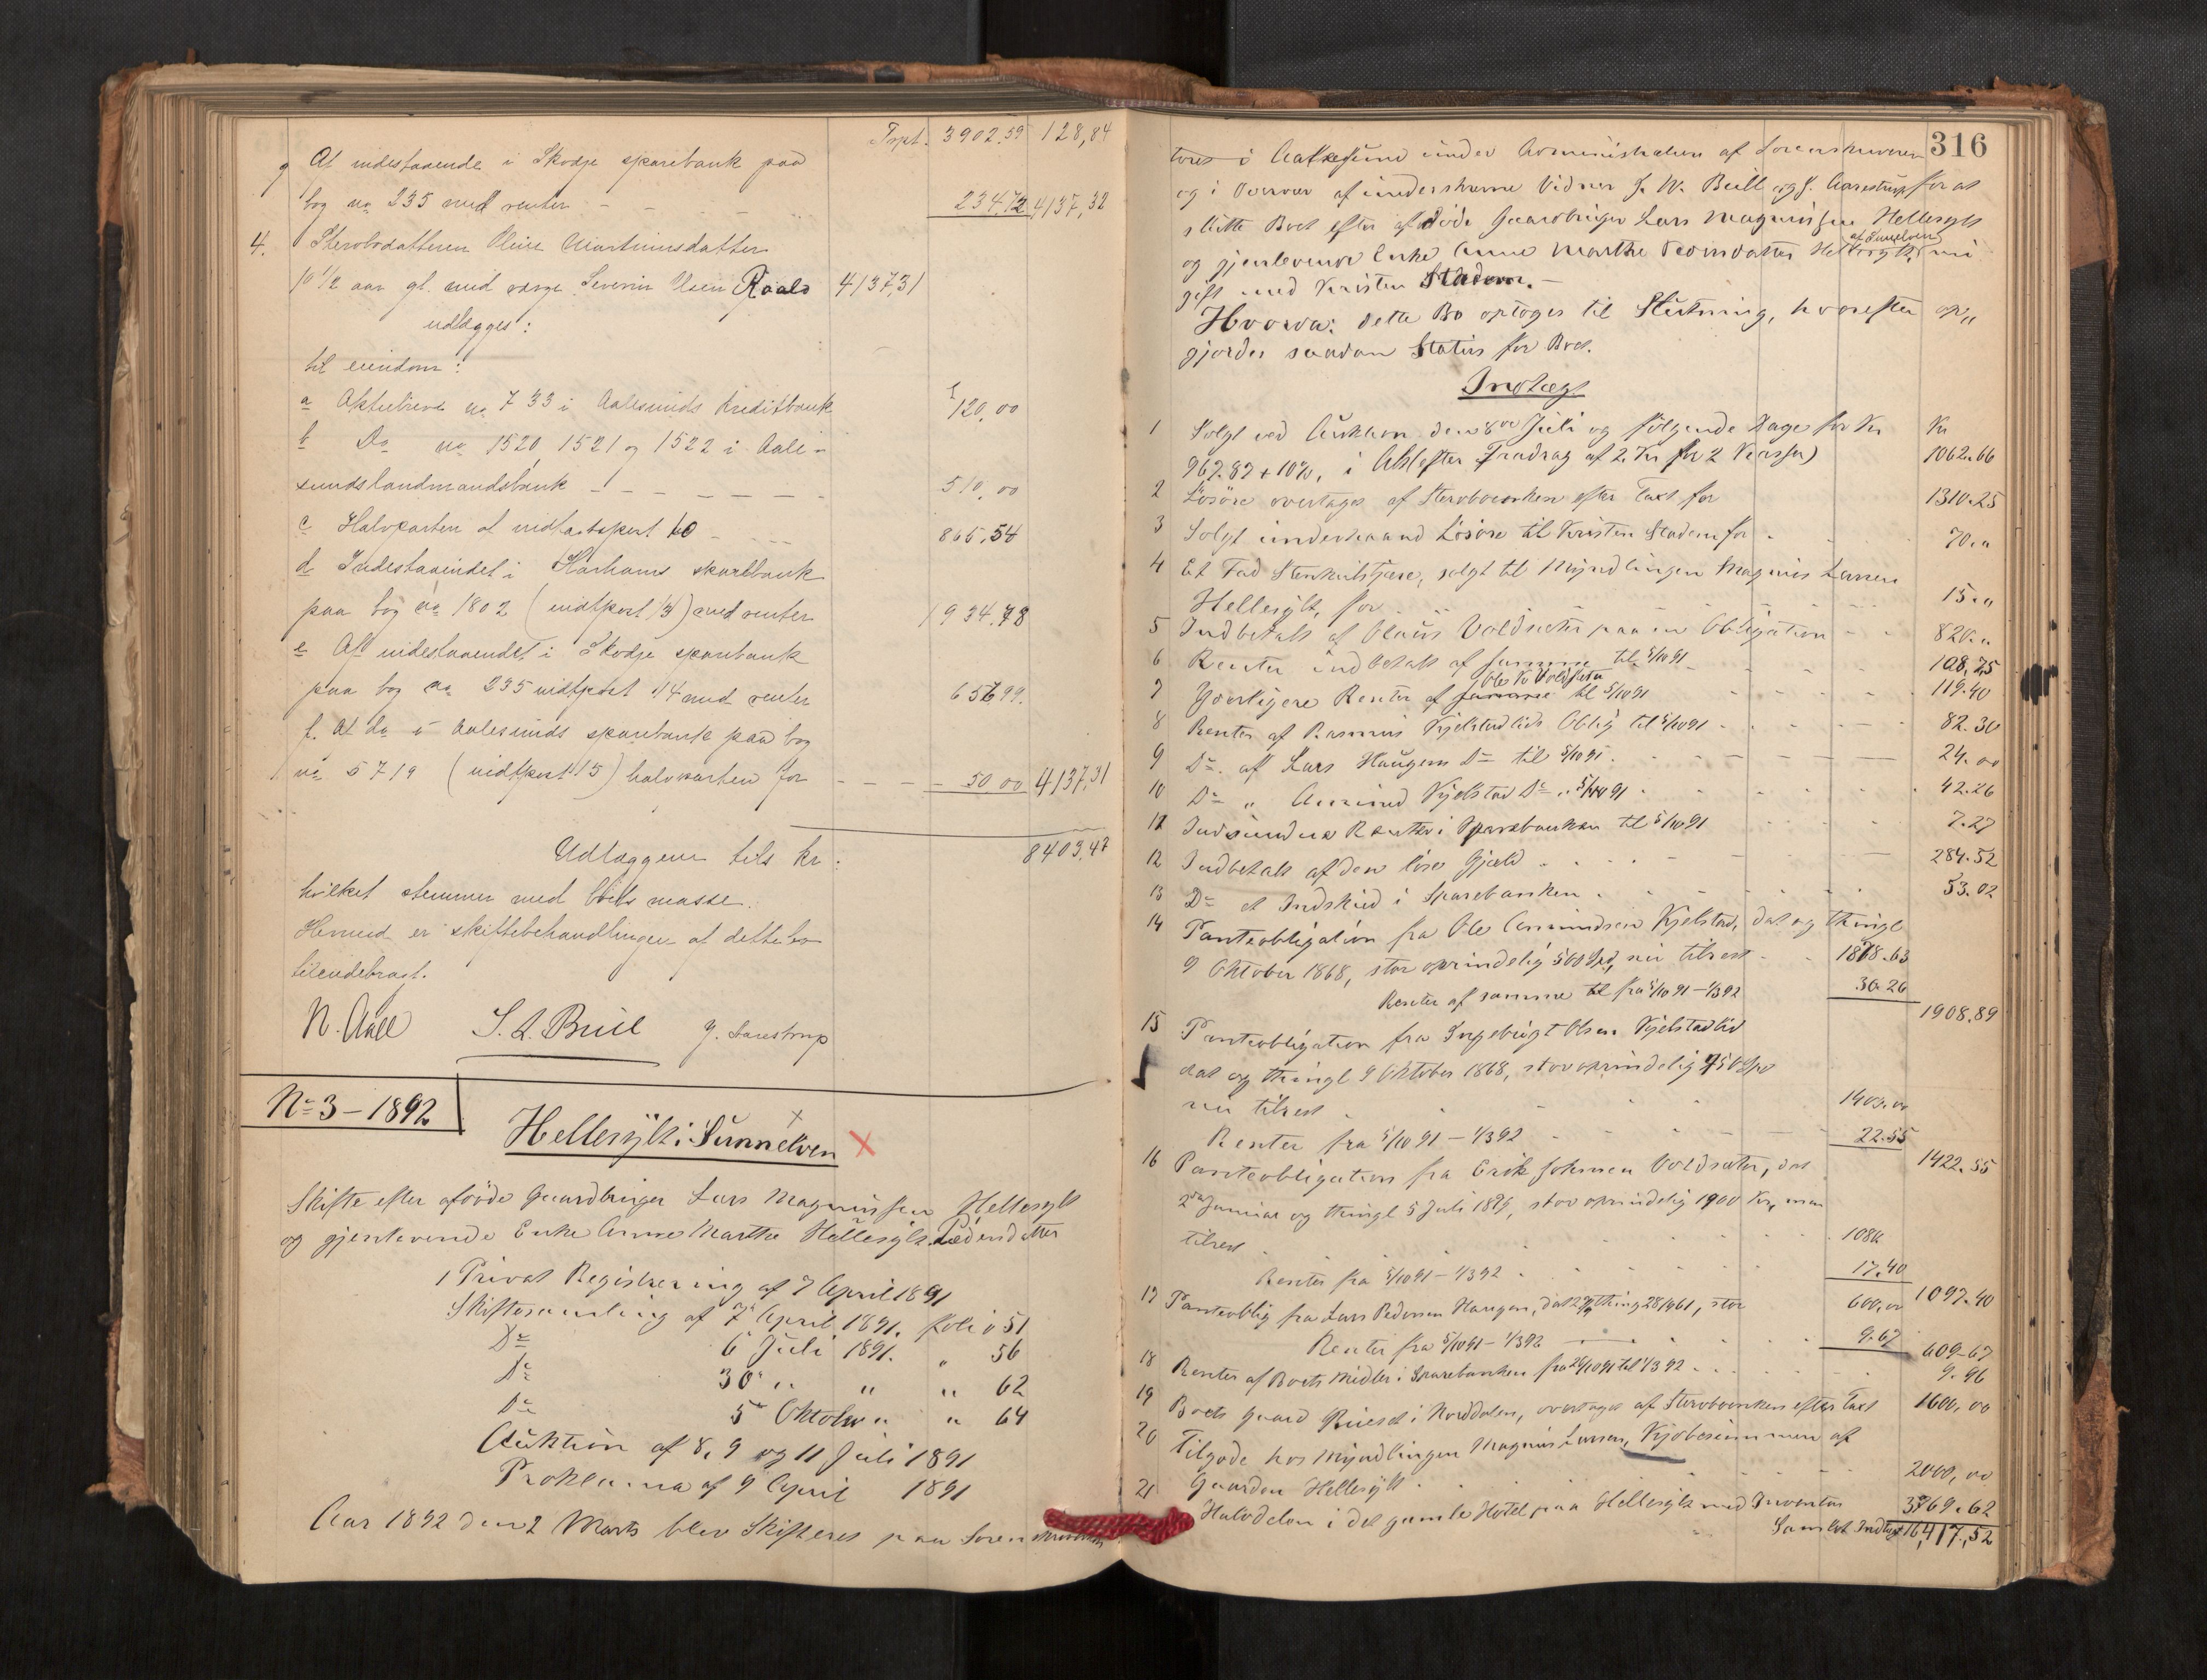 Trpt. 3902.59 128,84
g At indestaaende i Skodje sparebank paa
bog no 235 med renter - - - 234.72 4137,32
4. Sterbodatteren Oline Martinusdatter
10 1/2 aar gl. med værge Severin Olsen Roald 4137,31
udlægges:
til eiendom:
a Aktiebrev no 733 i Aalesunds Kreditbank 120,00
b Do no 1520, 1521 og 1522 i Aale-
sunds landmandsbank - - - - - - 510,00
c Halvparten af indtægtspost 10 - - - 865,54
d Indestaaendet i Harhams sparebank
paa bog no 1802 (indtpost 13) med renter 1934.78
e Af indestaaendet i Skodje sparebank
paa bog no 235 indtpost 14 med renter 656,99.
f. At do i Aalesunds sparebank paa bog
no 5719 (indtpost 15) halvparten for - - - 50,00 4137,31
Udlæggene tils kr: 8403,47
hvilket stemmer med boets masse.
Hermed er skiftebehandlingen af dette bo
tilendebragt.
N. Aall S. A. Buill J. Aarestrup
No 3 - 1892
Hellesylt i Sunnelven
Skifte efter afdöde Gaardbruger Lars Magnussen Hellesylt
og gjenlevende Enke Anne Marthe Hellesylt Pedersdatter
1 Privat Registrering af 7 April 1891
Skiftesamling af 7de April 1891. folio 51
Do 6 Juli 1891. " 56
Do 30 " " " 62
Do 5te Oktober " " 64
Auktion af 8, 9 og 11 Juli 1891
Proklama af 9 April 1891
Aar 1892 den 2 Marts blev Skifteret paa Sorenskriver
316
tores i Aalesund under Administration af Sorenskriveren
og i Overvær af underskrevne Vidner S. A. Buill og J. Aarestrup for at
slutte Boet efter afdöde Gaardbruger Lars Magnussen Hellesylt
af Sunelven
og gjenlevende Enke Anne Marthe Pedersdatter Hellesylt, nu
gift med Kristen Stadem. -
Hvorda: dette Bo optoges til Slutning, hvorefter op„
gjordes saadan Status for Boet.
Indtægt
1 Solgt ved Auktion den 8de Juli og følgende Dage for Kr Kr
967.87 + 10%, i Alt (efter Fradrag af 2 Kr for 2 Kasser) 1062.66
2 Lösöre overtaget af Sterboenken efter Taxt for 1310.25
3 Solgt underhaand Lösöre til Kristen Stadem for . 70."
4 Et Fad Stenkulstjære, solgt til Myndlingen Magnus Larsen
Hellesylt, for 15."
5 Indbetalt af Olaus Voldsæter paa en Obligation - - 820."
6 Renter indbetalt af samme til 5/10 91 - 108,75
Ole K Voldsæter
7 Yderligere Renter af samme til 5/10 91 - 119.40
8 Renter af Rasmus Kjelstadlids Oblig til 5/10 91 - 82.30
9 Do. af Lars Haugens Do til 5/10 91 . 24.00
10 Do " Amund Kjelstad Do " 5/10 91 . 42.26
11 Indvundne Renter i Sparebanken til 5/10 91 7.27
12 Indbetalt af den löse Gjæld . 284.52
13 Do et Indskud i Sparebanken . 53.02
14 Panteobligation fra Ole Amundsen Kjelstad, dat og thingl
9 Oktober 1868, stor oprindelig 500 Spd, nu tilrest . 1878.63
Renter af samme fra 5/10 91 - 1/3 92 30.26
1908.89
15 Panteobligation fra Ingebrigt Olsen Kjelstadlid
dat og thingl 9 Oktober 1868, stor oprindelig 450 Spd
nu tilrest . 1400.00
Renter fra 5/10 91 - 1/3 92 22.55
1422.55
16 Panteobligation fra Erik Johnsen Voldsæter, dat
2den Januar og thingl 5 Juli 1876, stor oprindelig 1900 Kr, nu
tilrest . 1080
Renter fra 5/10 91 - 1/3 92 . 17.40
1097.40
17 Panteoblig fra Lars Pedersen Haugen, dat 27/9 thing 28/9 61, stor 600,00
Renter fra 5/10 91 - 1/3 92 9.67
609.67
18 Renter af Boets Midler i Sparebanken fra 26/10 91 til 1/3 92 . 9.96
19 Boets Gaard Ruset i Norddalen, overtaget af Sterboenken efter Taxt 1600,00
20 Tilgode hos Myndlingen Magnus Larsen, Kjøbesummen af
Gaarden Hellesylt . 2000,00
21 Halvdelen i det gamle Hotel paa Hellesylt med Inventar 3869.62
Samlet Indtægt 16,417,52